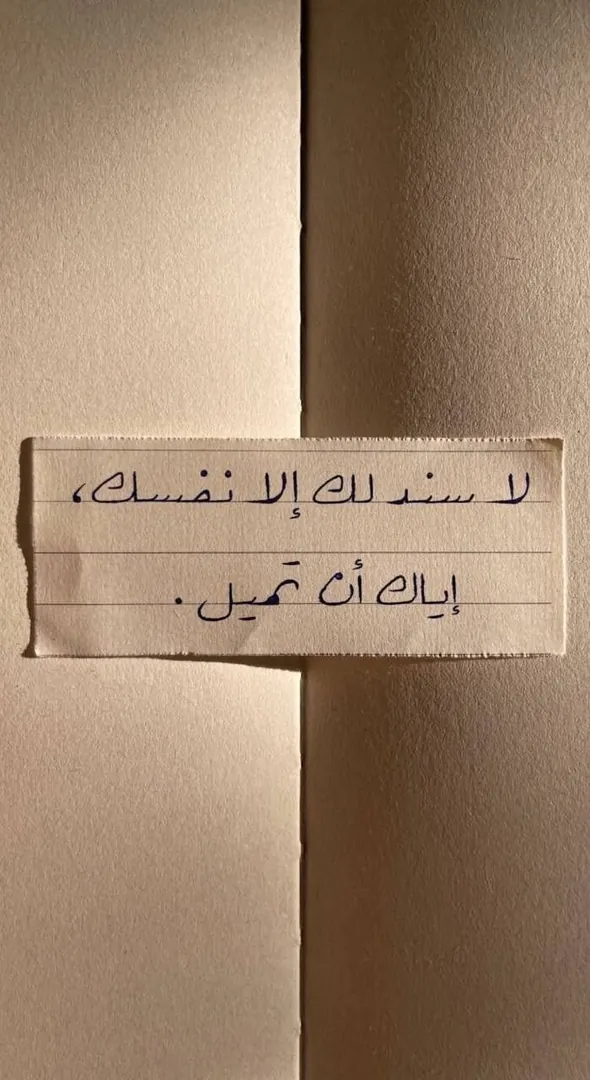 لا سند لك إلا نفسك،
إياك أن تميل.